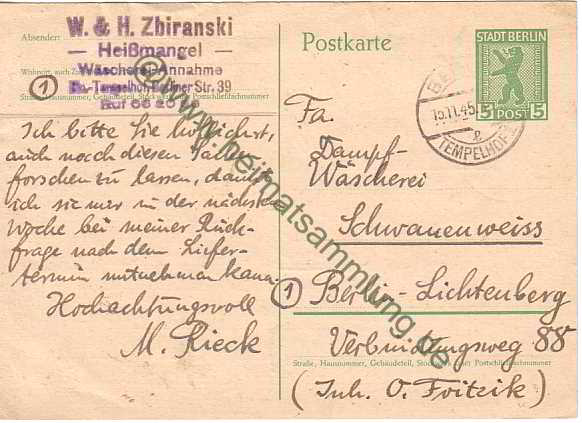 W. & H. Zbiranski
Absender:
— Heißmangel —
Wäscherei-Annahme
Bln.-Tempelhof, Berliner Str. 39
Ruf 66 20
1
Straße, Hausnummer, Gebäudeteil, Stockwerk oder Postschließfachnummer
Ich bitte Sie höflichst,
auch noch diesen
forschen zu lassen, damit
ich sie mir in der nächsten
Woche bei meiner Rück-
frage nach dem Liefer-
termin mitnehmen kann.
Hochachtungsvoll
M. Rieck
Postkarte
STADT BERLIN
5 POST 5
15.11.45
TEMPELHOF
Fa.
Dampf-
Wäscherei
Schwanenweiss
1 Berlin-Lichtenberg
Verbindungsweg 88
Straße, Hausnummer, Gebäudeteil, Stockwerk oder Postschließfachnummer
(Inh. O. Foitzik)
@www.heimatsammlung.de